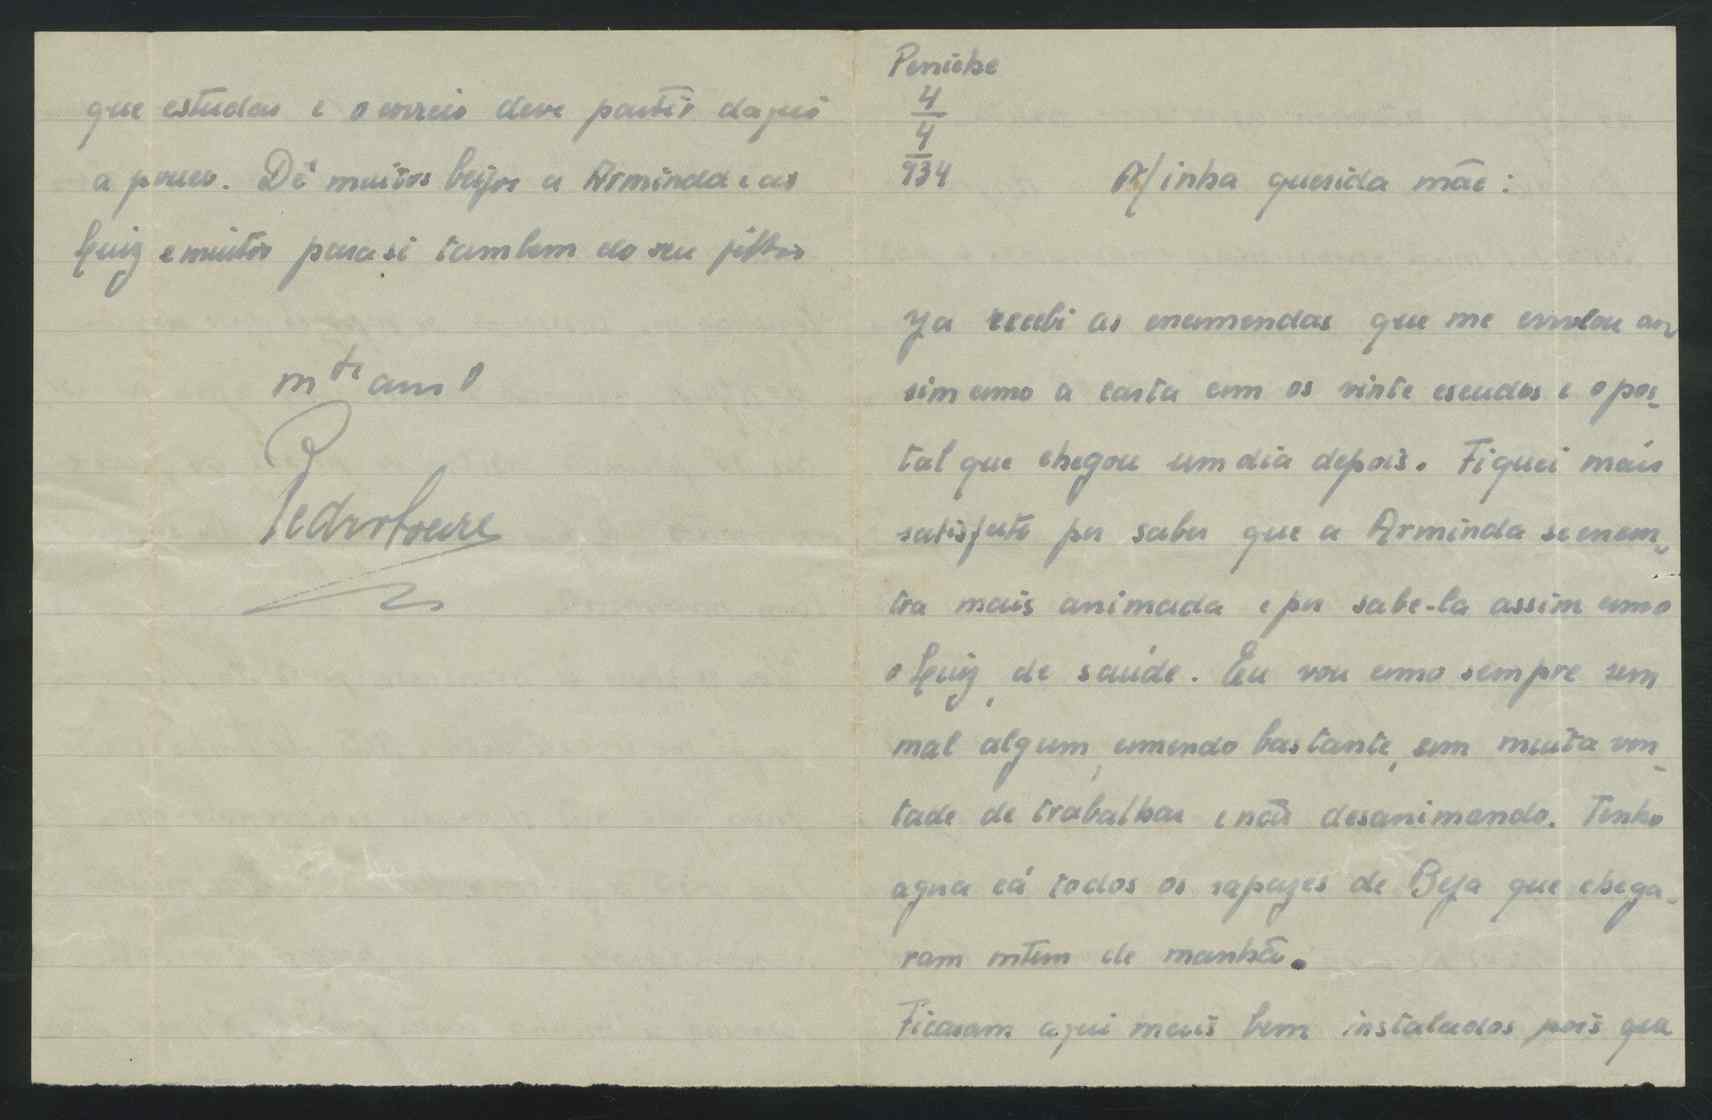 Peniche
4
4
934
Minha querida mãe:
Ja recebi as encomendas que me enviou as
sim como a carta com os vinte escudos e o pos-
tal que chegou um dia depois. Fiquei mais
satisfeito por saber que a Arminda se encon-
tra mais animada e por sabe-la assim como
o Luiz, de saúde. Eu vou como sempre sem
mal algum, comendo bastante, com muita von-
tade de trabalhar e não desanimando. Tenho
agora cá todos os rapazes de Beja que chega-
ram ontem de manhã.
Ficaram aqui mais bem instalados pois que
que estudar e o correio deve partir daqui
a pouco. Dê muitos beijos a Arminda e ao
Luiz e muitos para si tambem do seu filho
mto amo
Pedro Soares